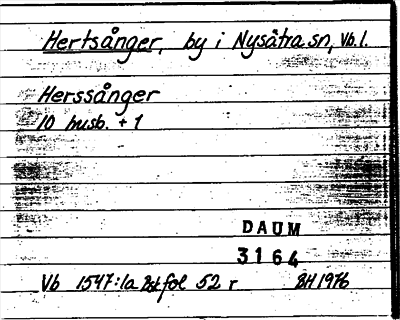 Hertsånger, by i Nysätra sn, Vb. l.
Herssånger
10 husb. + 1
DAUM
3164
Vb 1547:1a Bskfol 52 r BH 1976